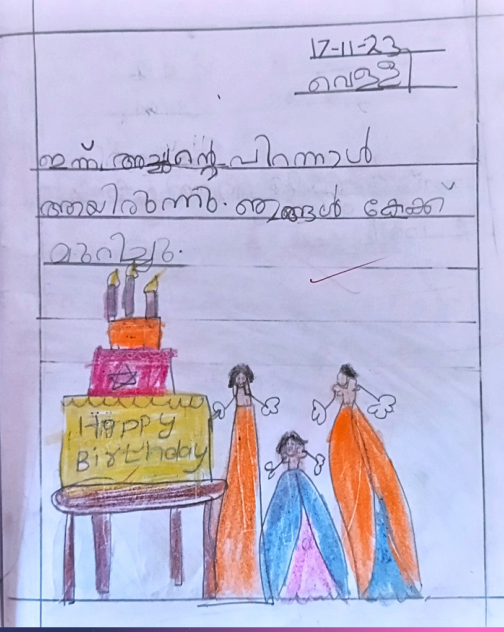 17-11-23
വെള്ളി
ഇന്ന് അച്ഛന്റെ പിറന്നാൾ
ആയിരുന്നു. ഞങ്ങൾ കേക്ക്
മുറിച്ചു.
Happy
Birthday